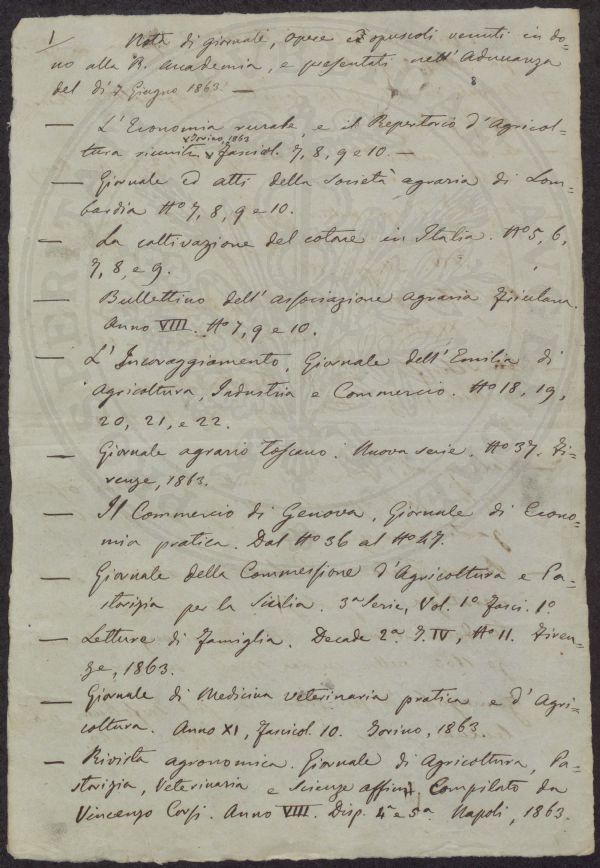 1/ Nota di giornali, opere ed opuscoli venuti in do=
no alla R. Accademia, e presentati nell'Adunanza
del dì 7 Giugno 1863. —
8
— L'Economia rurale, e il Repertorio d'Agricol=
Torino, 1863
tura riuniti. Fascicol. 7, 8, 9 e 10. —
— Giornale ed atti della società agraria di Lom=
bardia No 7, 8, 9 e 10.
— La coltivazione del cotone in Italia. No 5, 6,
7, 8, e 9.
— Bullettino dell'associazione agraria Friulana.
Anno VIII. No 7, 9 e 10.
— L'Incoraggiamento, Giornale dell'Emilia di
Agricoltura, Industria e Commercio. No 18, 19,
20, 21, e 22.
— Giornale agrario toscano. Nuova serie. No 37. Fi=
renze, 1863.
— Il Commercio di Genova, Giornale di Econo=
mia pratica. Dal No 36 al No 47.
— Giornale della Commessione d'Agricoltura e Pa=
storizia per la Sicilia. 3a Serie, Vol. 1o Fasci. 1o
— Letture di famiglia. Decade 2a. T. IV, No 11. Firen=
ze, 1863.
— Giornale di Medicina veterinaria pratica e d'Agri=
coltura. Anno XI, Fascicol. 10. Torino, 1863.
— Rivista agronomica. Giornale di Agricoltura, Pa=
storizia, Veterinaria e Scienze affini, Compilato da
Vincenzo Corsi. Anno VIII. Disp. 4a e 5a. Napoli, 1863.